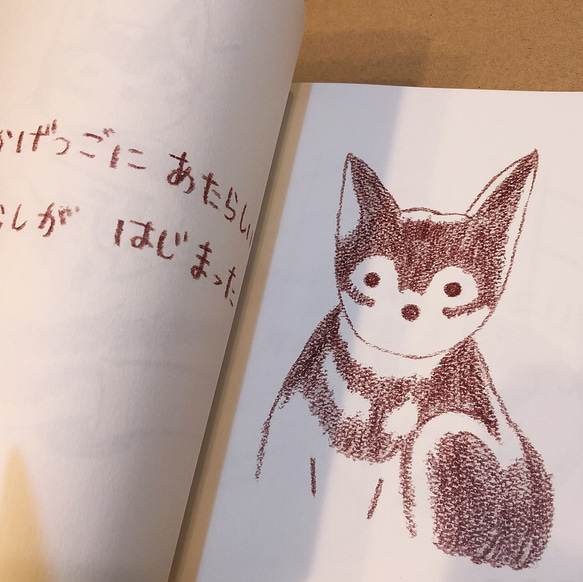 げつごに あたらしい
しが はじまった